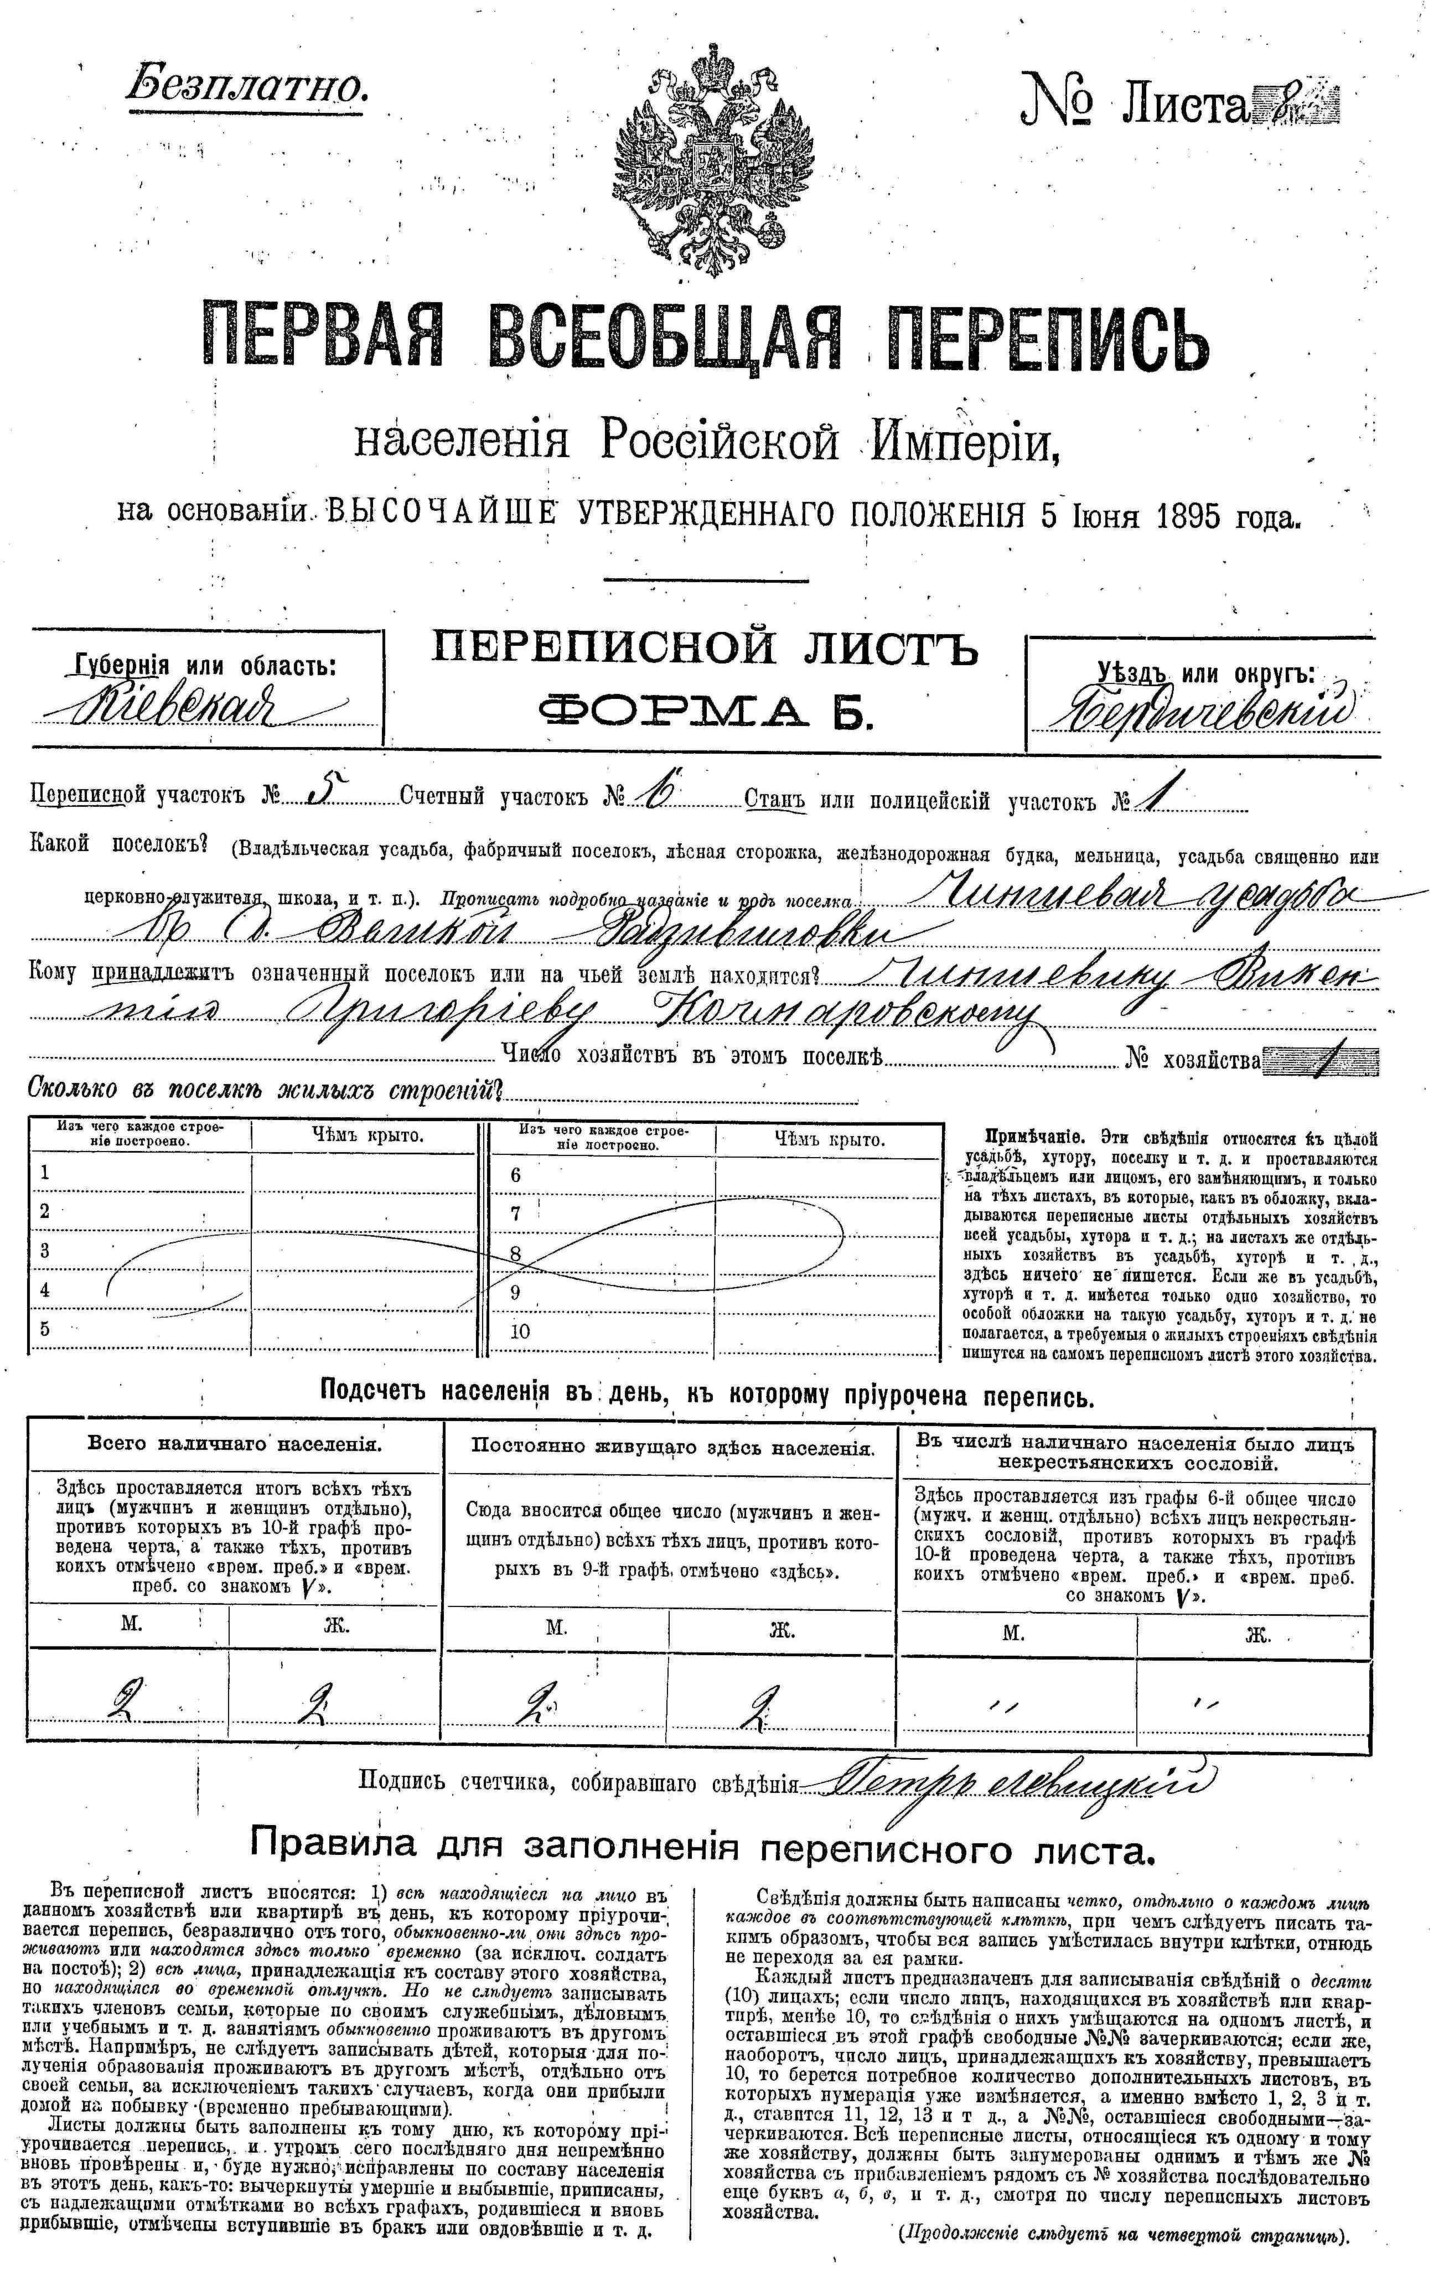 Безплатно.
№ Листа
ПЕРВАЯ ВСЕОБЩАЯ ПЕРЕПИСЬ
населенія Россійской Имперіи,
на основаніи ВЫСОЧАЙШЕ УТВЕРЖДЕННАГО ПОЛОЖЕНІЯ 5 Іюня 1895 года.
ПЕРЕПИСНОЙ ЛИСТЪ
ФОРМА Б.
Губернія или область:
Кіевская
Уѣздъ или округъ:
Бердичевскій
Переписной участокъ № 5 Счетный участокъ № 6 Станъ или полицейскій участокъ № 1
Какой поселокъ? (Владѣльческая усадьба, фабричный поселокъ, лѣсная сторожка, желѣзнодорожная будка, мельница, усадьба священно или
церковно-служителя, школа, и т. п.). Прописать подробно названіе и родъ поселка Чиншевая усадьба
въ д. Великой Радзивиловки
Кому принадлежитъ означенный поселокъ или на чьей землѣ находится? Чиншевику Викен-
тію Григоріеву Качмаровскому
Число хозяйствъ въ этомъ поселкѣ № хозяйства 1
Сколько въ поселкѣ жилыхъ строеній?
Изъ чего каждое строе-
ніе построено.
Чѣмъ крыто.
Изъ чего каждое строе-
ніе построено.
Чѣмъ крыто.
1
2
3
4
5
6
7
8
9
10
Примѣчаніе. Эти свѣдѣнія относятся къ цѣлой
усадьбѣ, хутору, поселку и т. д. и проставляются
владѣльцемъ или лицомъ, его замѣняющимъ, и только
на тѣхъ листахъ, въ которые, какъ въ обложку, вкла-
дываются переписные листы отдѣльныхъ хозяйствъ
всей усадьбы, хутора и т. д.; на листахъ же отдѣль-
ныхъ хозяйствъ въ усадьбѣ, хуторѣ и т. д.,
здѣсь ничего не пишется. Если же въ усадьбѣ,
хуторѣ и т. д. имѣется только одно хозяйство, то
особой обложки на такую усадьбу, хуторъ и т. д. не
полагается, а требуемыя о жилыхъ строеніяхъ свѣдѣнія
пишутся на самомъ переписномъ листѣ этого хозяйства.
Подсчетъ населенія въ день, къ которому пріурочена перепись.
Всего наличнаго населенія.
Здѣсь проставляется итогъ всѣхъ тѣхъ
лицъ (мужчинъ и женщинъ отдѣльно),
противъ которыхъ въ 10-й графѣ про-
ведена черта, а также тѣхъ, противъ
коихъ отмѣчено «врем. преб.» и «врем.
преб. со знакомъ V».
М. Ж.
2 2
Постоянно живущаго здѣсь населенія.
Сюда вносится общее число (мужчинъ и жен-
щинъ отдѣльно) всѣхъ тѣхъ лицъ, противъ кото-
рыхъ въ 9-й графѣ, отмѣчено «здѣсь».
М. Ж.
2 2
Въ числѣ наличнаго населенія было лицъ
некрестьянскихъ сословій.
Здѣсь проставляется изъ графы 6-й общее число
(мужч. и женщ. отдѣльно) всѣхъ лицъ некрестьян-
скихъ сословій, противъ которыхъ въ графѣ
10-й проведена черта, а также тѣхъ, противъ
коихъ отмѣчено «врем. преб.» и «врем. преб.
со знакомъ V».
М. Ж.
" "
Подпись счетчика, собиравшаго свѣдѣнія Петръ Левицкій
Правила для заполненія переписного листа.
Въ переписной листъ вносятся: 1) всѣ находящіеся на лицо въ
данномъ хозяйствѣ или квартирѣ въ день, къ которому пріурочи-
вается перепись, безразлично отъ того, обыкновенно-ли они здѣсь про-
живаютъ или находятся здѣсь только временно (за исключ. солдатъ
на постоѣ); 2) всѣ лица, принадлежащія къ составу этого хозяйства,
но находящіяся во временной отлучкѣ. Но не слѣдуетъ записывать
такихъ членовъ семьи, которые по своимъ служебнымъ, дѣловымъ
или учебнымъ и т. д. занятіямъ обыкновенно проживаютъ въ другомъ
мѣстѣ. Напримѣръ, не слѣдуетъ записывать дѣтей, которыя для по-
лученія образованія проживаютъ въ другомъ мѣстѣ, отдѣльно отъ
своей семьи, за исключеніемъ такихъ случаевъ, когда они прибыли
домой на побывку (временно пребывающими).
Листы должны быть заполнены къ тому дню, къ которому прі-
урочивается перепись, и утромъ сего послѣдняго дня непремѣнно
вновь провѣрены и, буде нужно, исправлены по составу населенія
въ этотъ день, какъ-то: вычеркнуты умершіе и выбывшіе, приписаны,
съ надлежащими отмѣтками во всѣхъ графахъ, родившіеся и вновь
прибывшіе, отмѣчены вступившіе въ бракъ или овдовѣвшіе и т. д.
Свѣдѣнія должны быть написаны четко, отдѣльно о каждомъ лицѣ
каждое въ соотвѣтствующей клѣткѣ, при чемъ слѣдуетъ писать та-
кимъ образомъ, чтобы вся запись умѣстилась внутри клѣтки, отнюдь
не переходя за ея рамки.
Каждый листъ предназначенъ для записыванія свѣдѣній о десяти
(10) лицахъ; если число лицъ, находящихся въ хозяйствѣ или квар-
тирѣ, менѣе 10, то свѣдѣнія о нихъ умѣщаются на одномъ листѣ, и
оставшіеся въ этой графѣ свободные №№ зачеркиваются; если же,
наоборотъ, число лицъ, принадлежащихъ къ хозяйству, превышаетъ
10, то берется потребное количество дополнительныхъ листовъ, въ
которыхъ нумерація уже измѣняется, а именно вмѣсто 1, 2, 3 и т.
д., ставится 11, 12, 13 и т д., а №№, оставшіеся свободными—за-
черкиваются. Всѣ переписные листы, относящіеся къ одному и тому
же хозяйству, должны быть занумерованы однимъ и тѣмъ же №
хозяйства съ прибавленіемъ рядомъ съ № хозяйства послѣдовательно
еще буквъ а, б, в, и т. д., смотря по числу переписныхъ листовъ
хозяйства.
(Продолженіе слѣдуетъ на четвертой страницѣ).